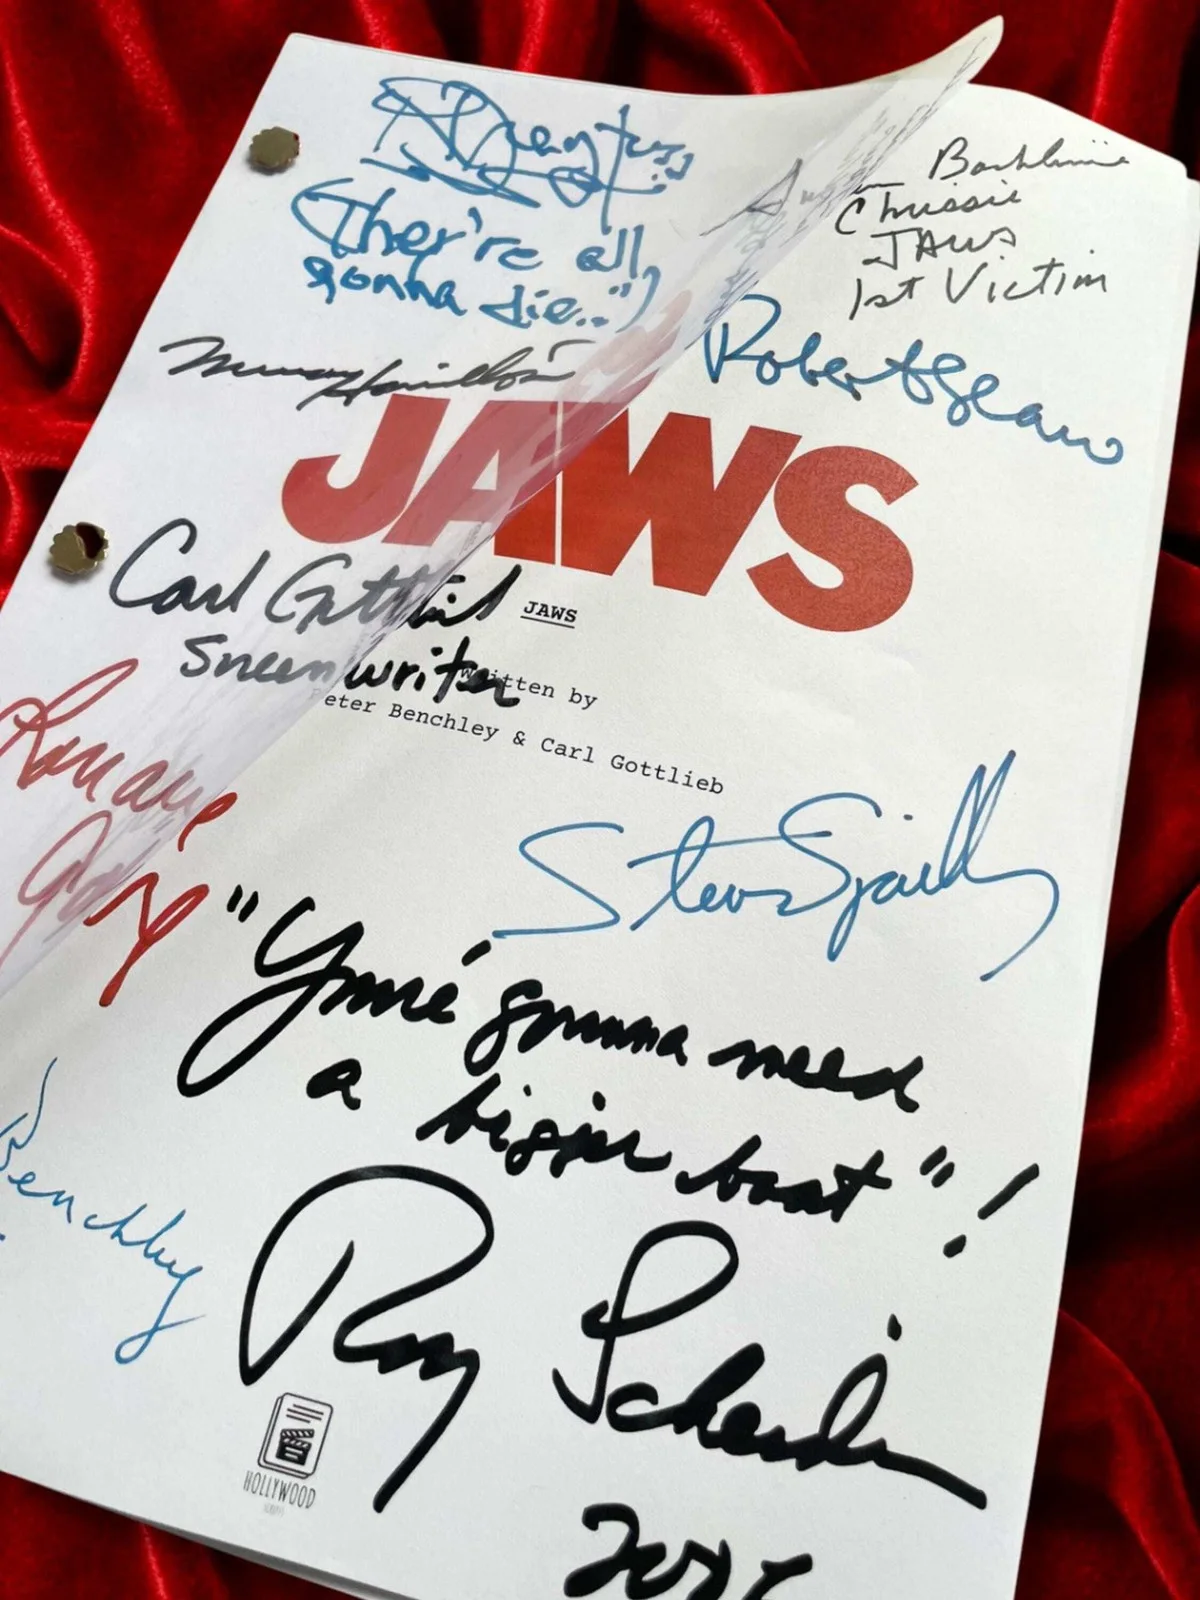 R Dreyfuss
(They're all
gonna die..")
Susan Backlinie
Chrissie
JAWS
1st Victim
Murray Hamilton
Robert Shaw
JAWS
Carl Gottlieb
Screenwriter
JAWS
written by
Peter Benchley & Carl Gottlieb
Lorraine
Gary
Steven Spielberg
"You're gonna need
a bigger boat"!
Benchley
Roy Scheider
HOLLYWOOD